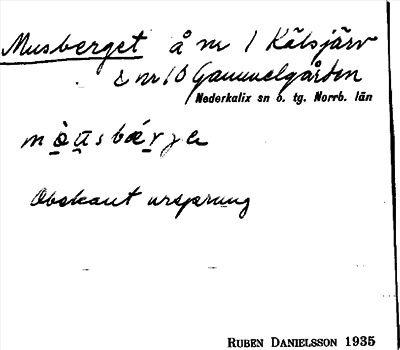 Musberget å nr 1 Kälsjärv
& nr 10 Gammelgården
Nederkalix sn o. tg. Norrb. län
Obskant ursprung
RUBEN DANIELSSON 1935